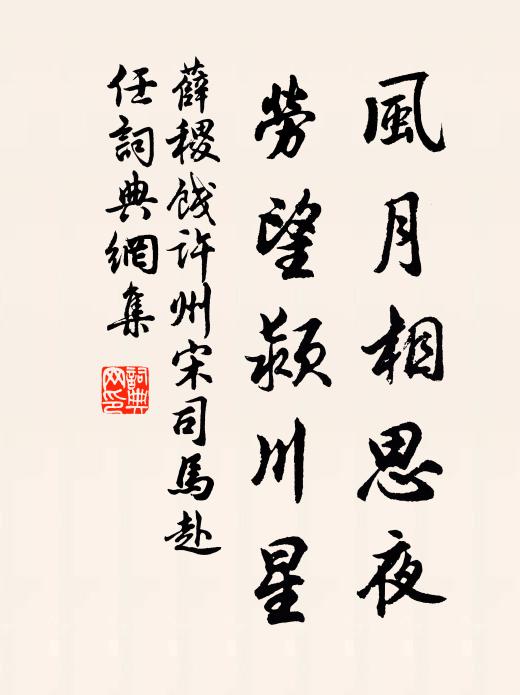 風月相思夜
勞望潁川星
薛稷餞許州宋司馬赴
任詞典網集
詞典
网印